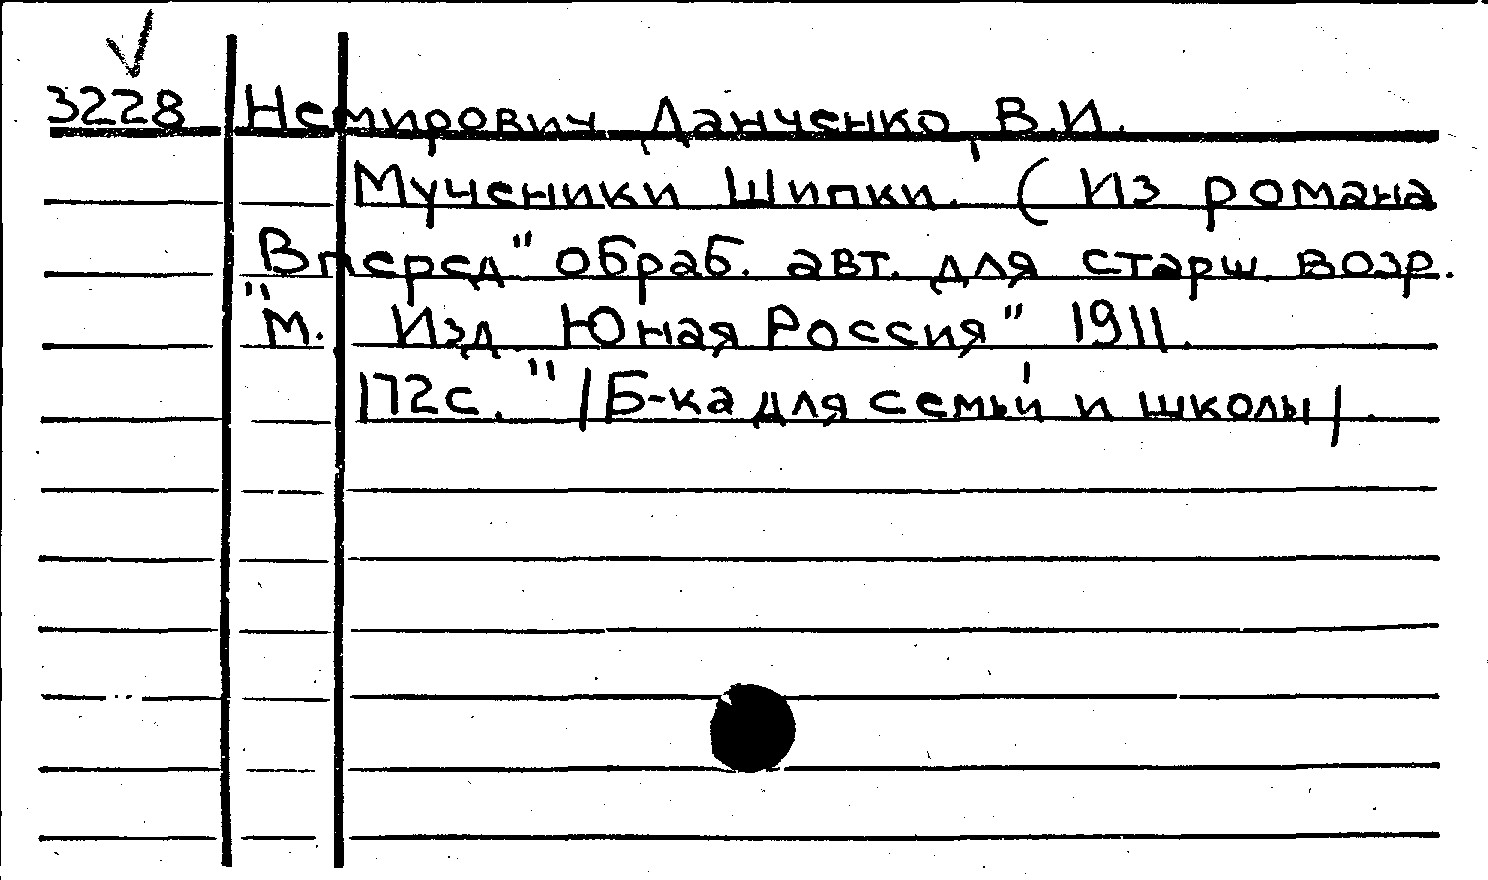 3228 Немирович Данченко, В.И.
Мученики Шипки. (Из романа
„Вперед" обраб. авт. для старш. возр.
М. Изд. „Юная Россия" 1911.
172с. /Б-ка для семьи и школы/.